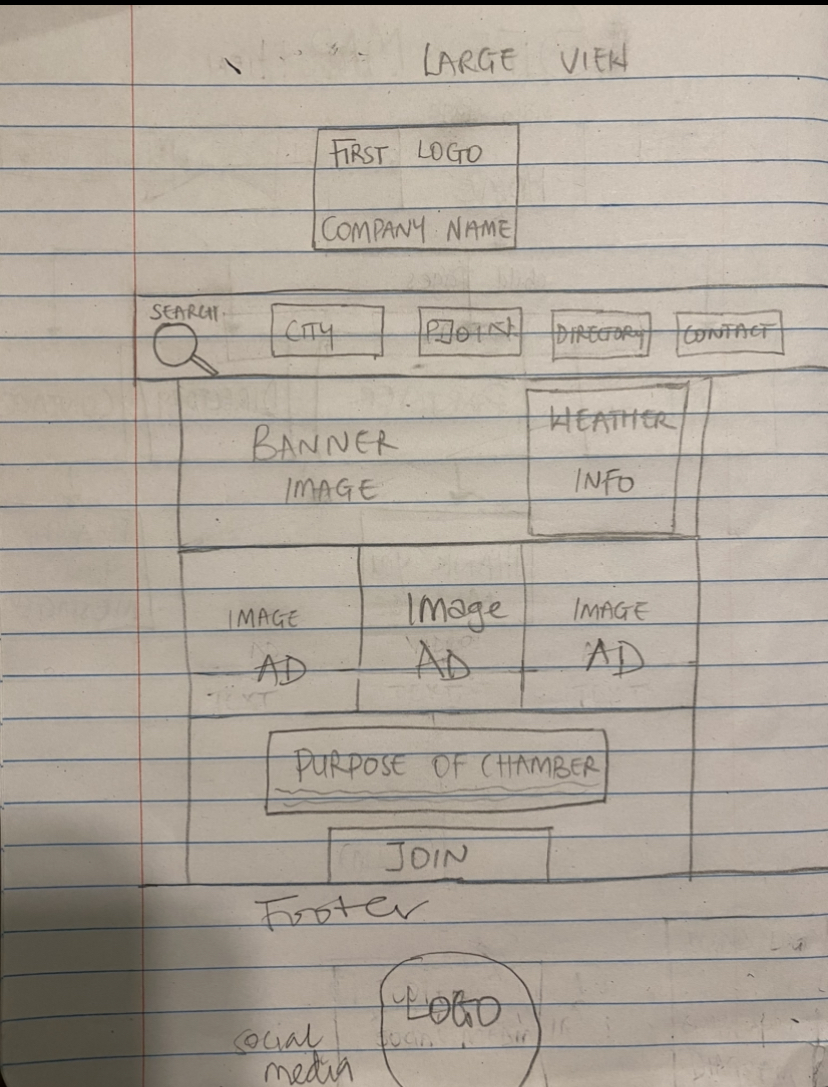 LARGE VIEW
FIRST LOGO
COMPANY NAME
SEARCH.
CITY
JOIN
DIRECTORY
CONTACT
BANNER
IMAGE
WEATHER
INFO
IMAGE
AD
Image
AD
IMAGE
AD
PURPOSE OF CHAMBER
JOIN
Footer
LOGO
social
media